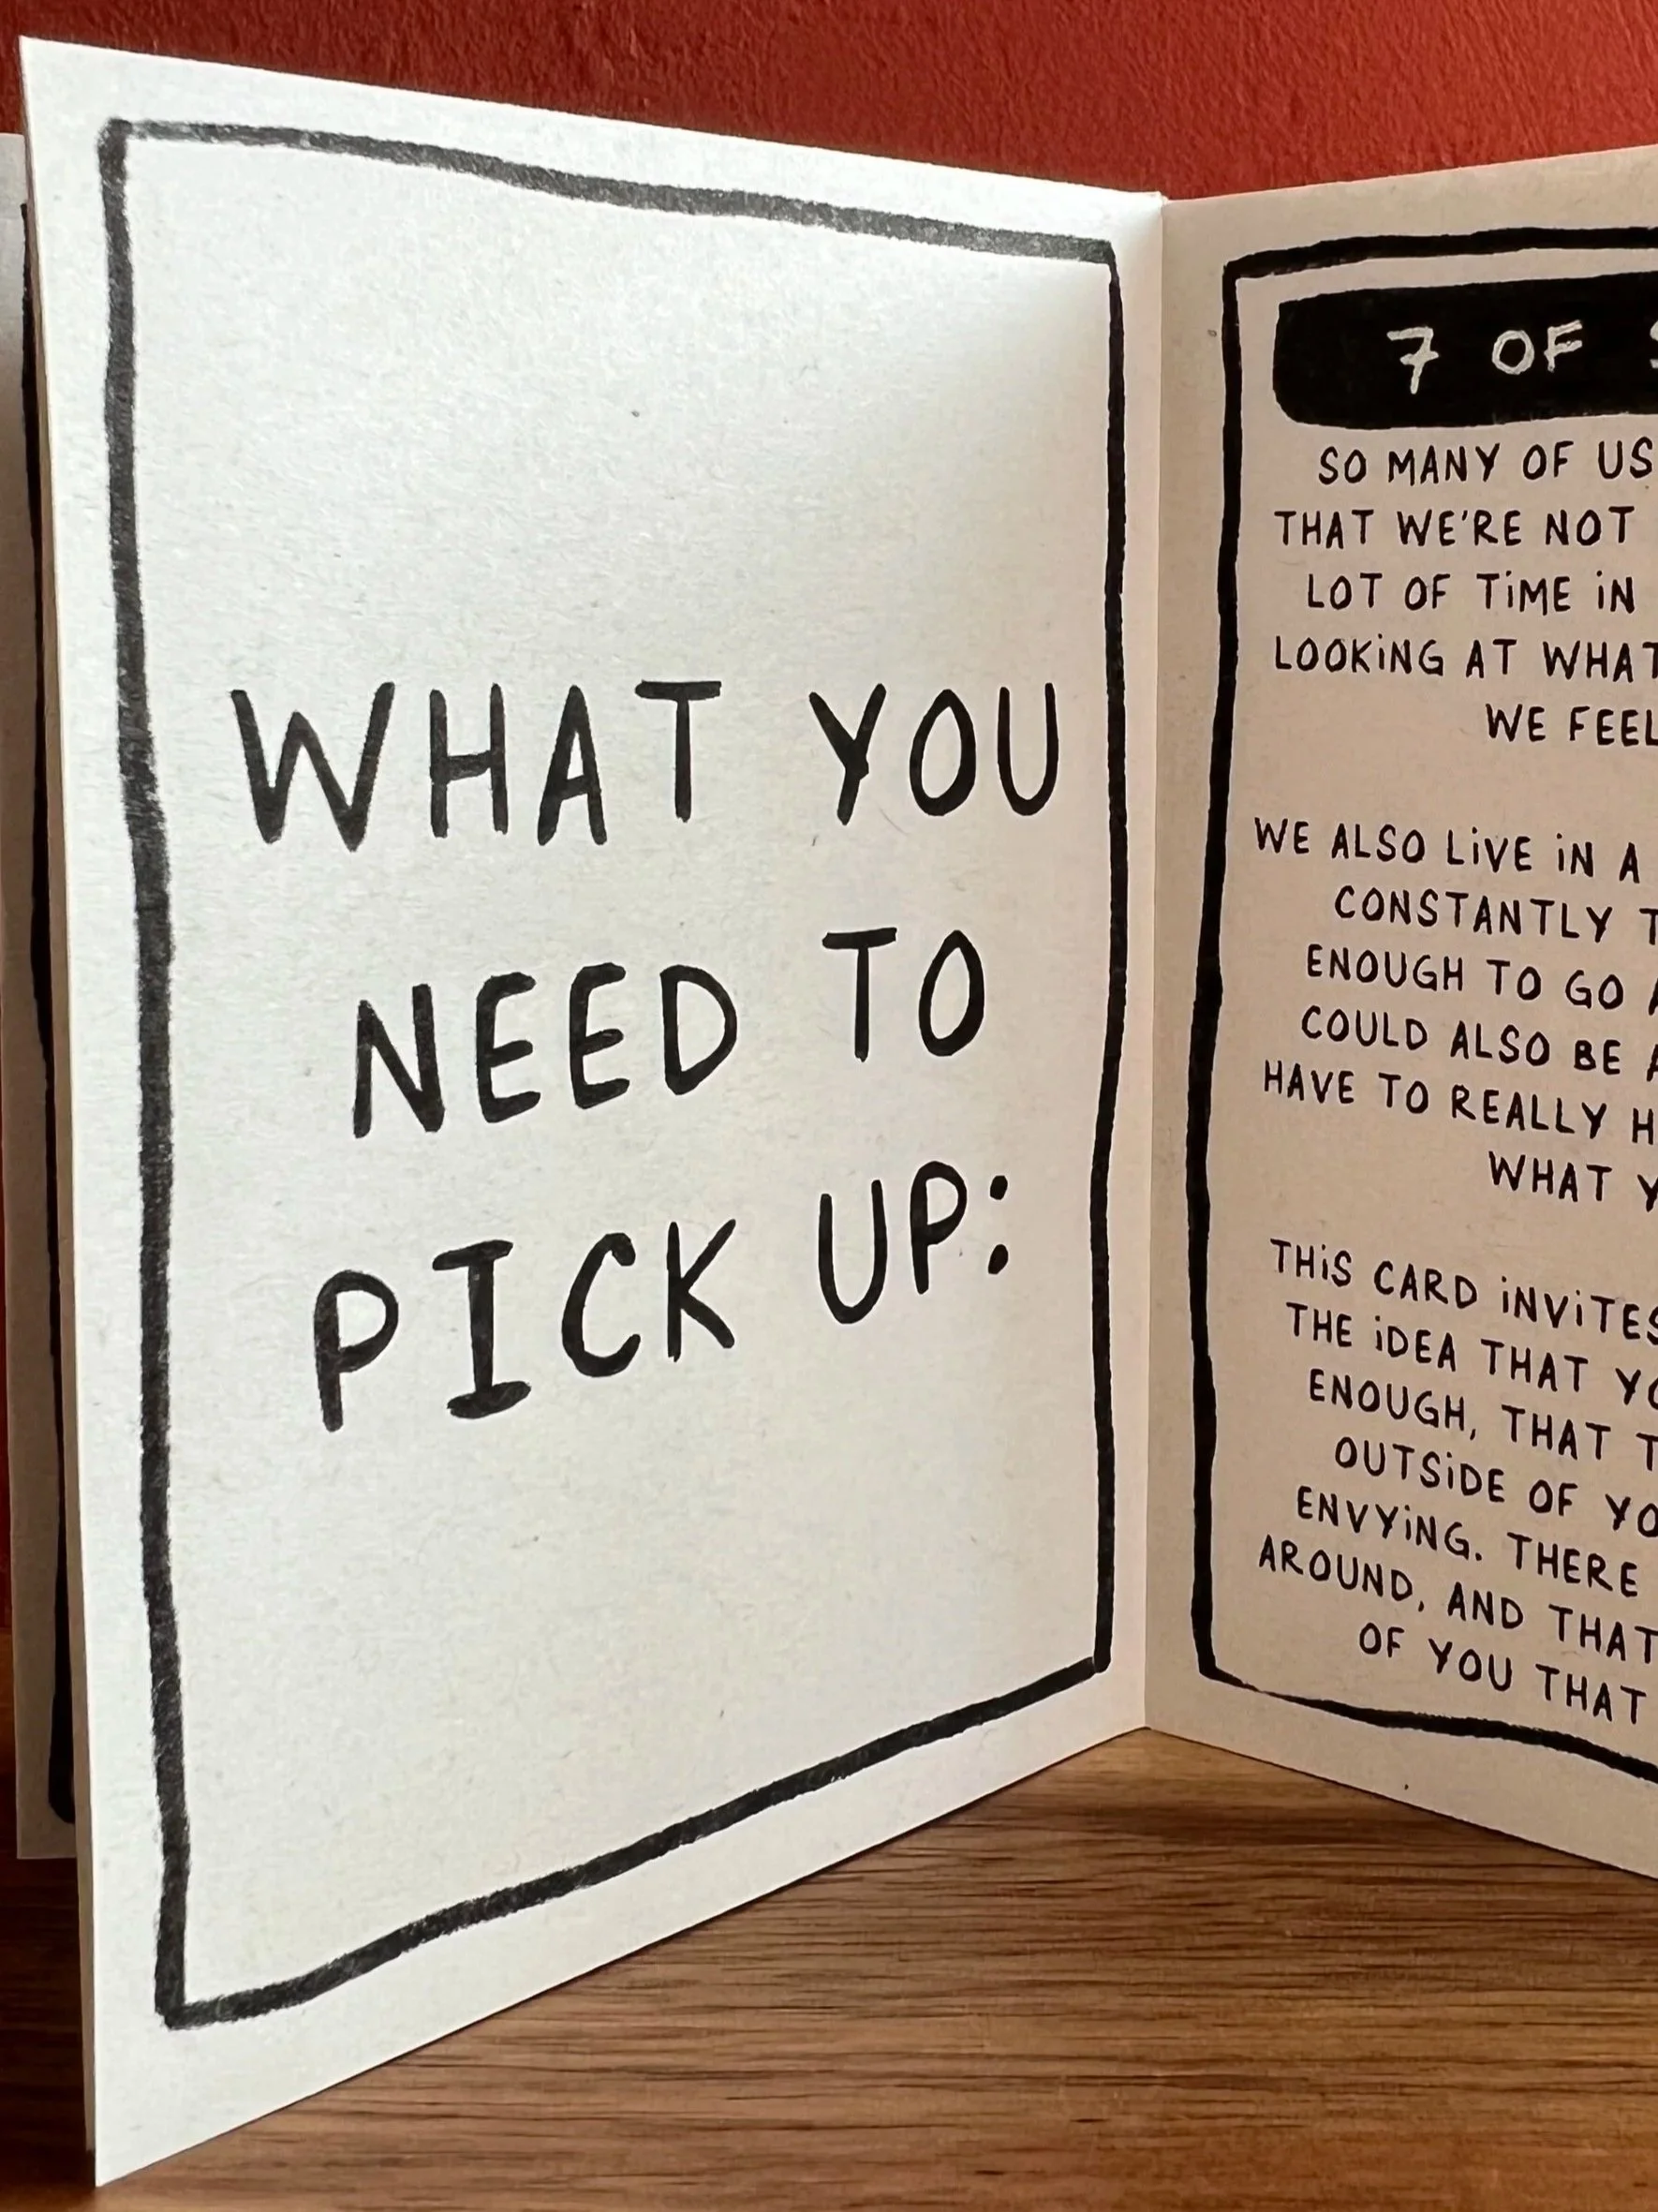 WHAT YOU
NEED TO
PICK UP:
7 OF
SO MANY OF US
THAT WE'RE NOT
LOT OF TiME iN
LOOKiNG AT WHAT
WE FEEL
WE ALSO LiVE iN A
CONSTANTLY
ENOUGH TO GO
COULD ALSO BE
HAVE TO REALLY
WHAT
THiS CARD iNViTES
THE iDEA THAT
ENOUGH, THAT
OUTSiDE OF
ENVYiNG. THERE
AROUND, AND THAT
OF YOU THAT